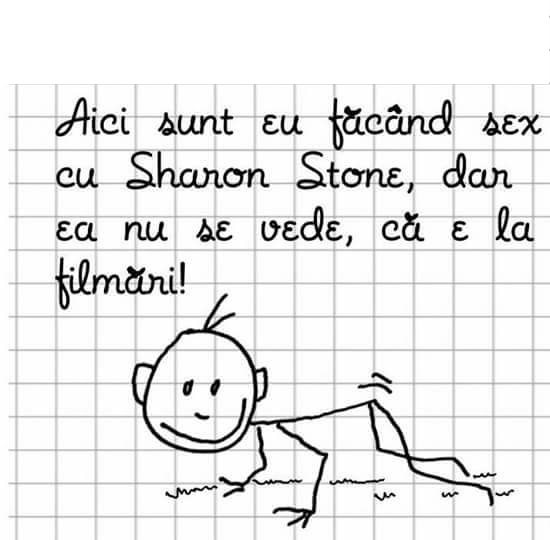 Aici sunt eu făcând sex
cu Sharon Stone, dar
ea nu se vede, că e la
filmări!